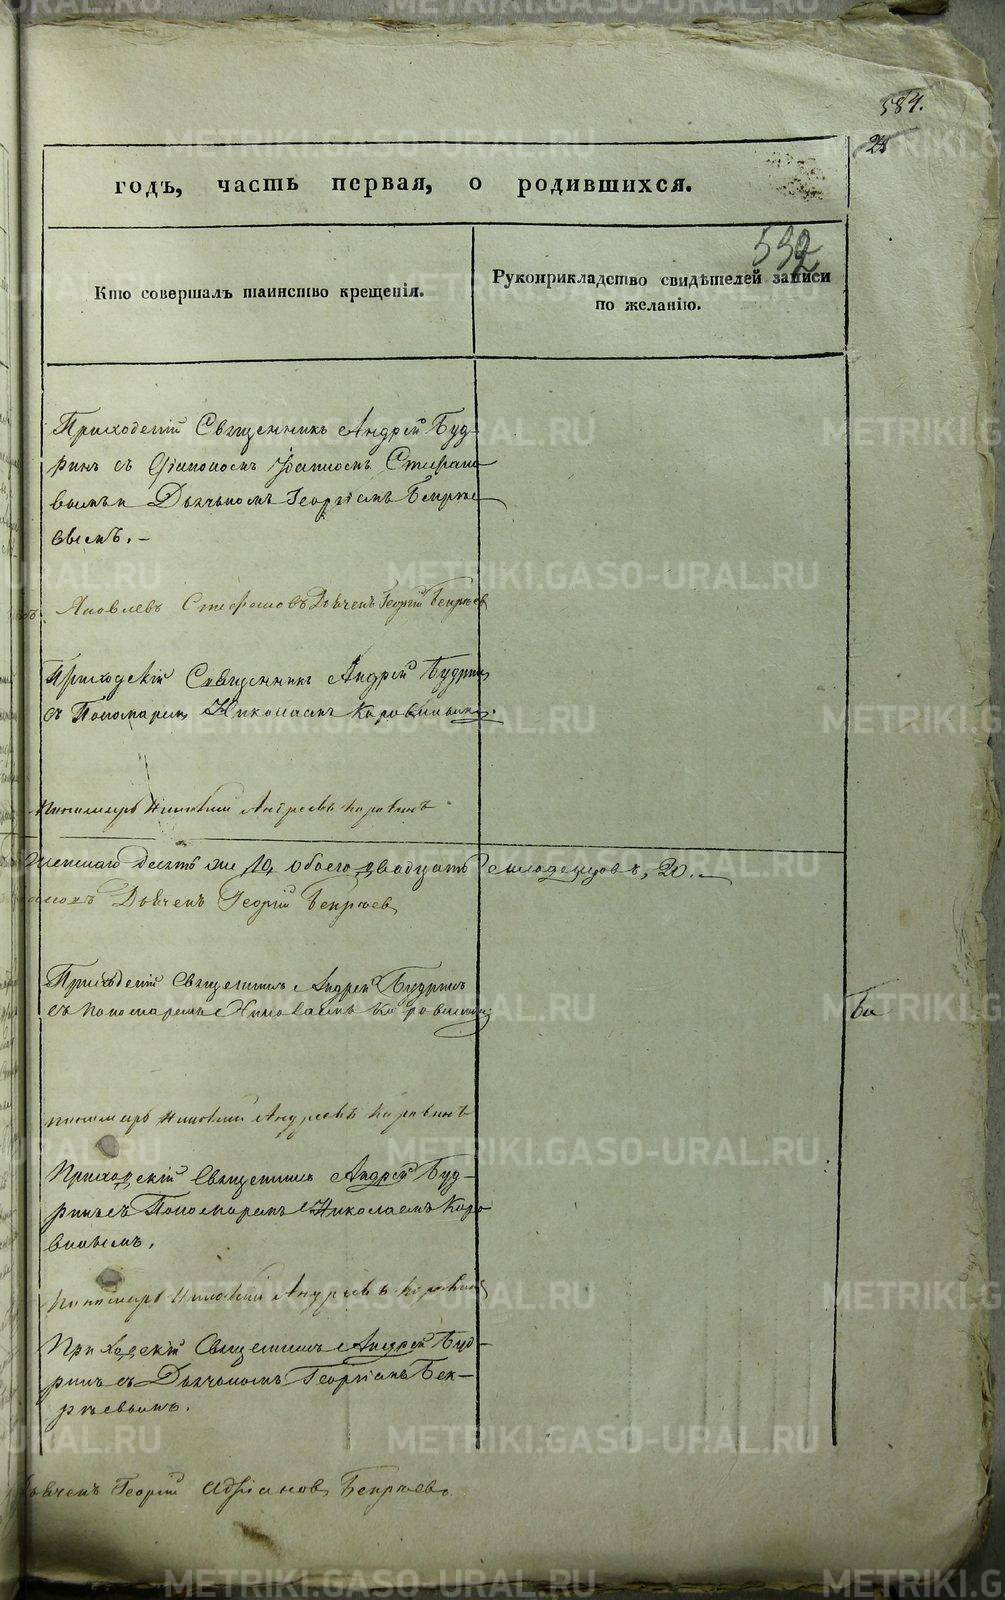 584.
24
годъ, часть первая, о родившихся.
532
Кто совершалъ таинство крещенія.
Рукоприкладство свидѣтелей записи
по желанію.
Приходскій Священникъ Андрей Буд-
ринъ съ Діакономъ Іоанномъ Стефано
вымъ и Дьячкомъ Георгіемъ Бекрѣе
вымъ.
Яковлевъ Стефановъ Дьячекъ Георгій Бекрѣев
Приходскій Священникъ Андрей Будринъ
съ Пономаремъ Николаемъ Коровинымъ.
Пономарь Николай Андреевъ Коровинъ
Женскаго десять же 10, обоего двадцать младенцовъ, 20.
Дьячекъ Георгій Бекрѣев
Приходскій Священникъ Андрей Будринъ
съ пономаремъ Николаемъ Коровинымъ
пономарь Николай Андреевъ Коровинъ
Приходскій Священникъ Андрей Буд-
ринъ съ Пономаремъ Николаемъ Коро
винымъ.
Пономарь Николай Андреевъ Коровинъ
Приходскій Священникъ Андрей Буд-
ринъ съ Дьячкомъ Георгіемъ Бек-
рѣевымъ.
Дьячекъ Георгій Адріановъ Бекрѣевъ
METRIKI.GASO-URAL.RU